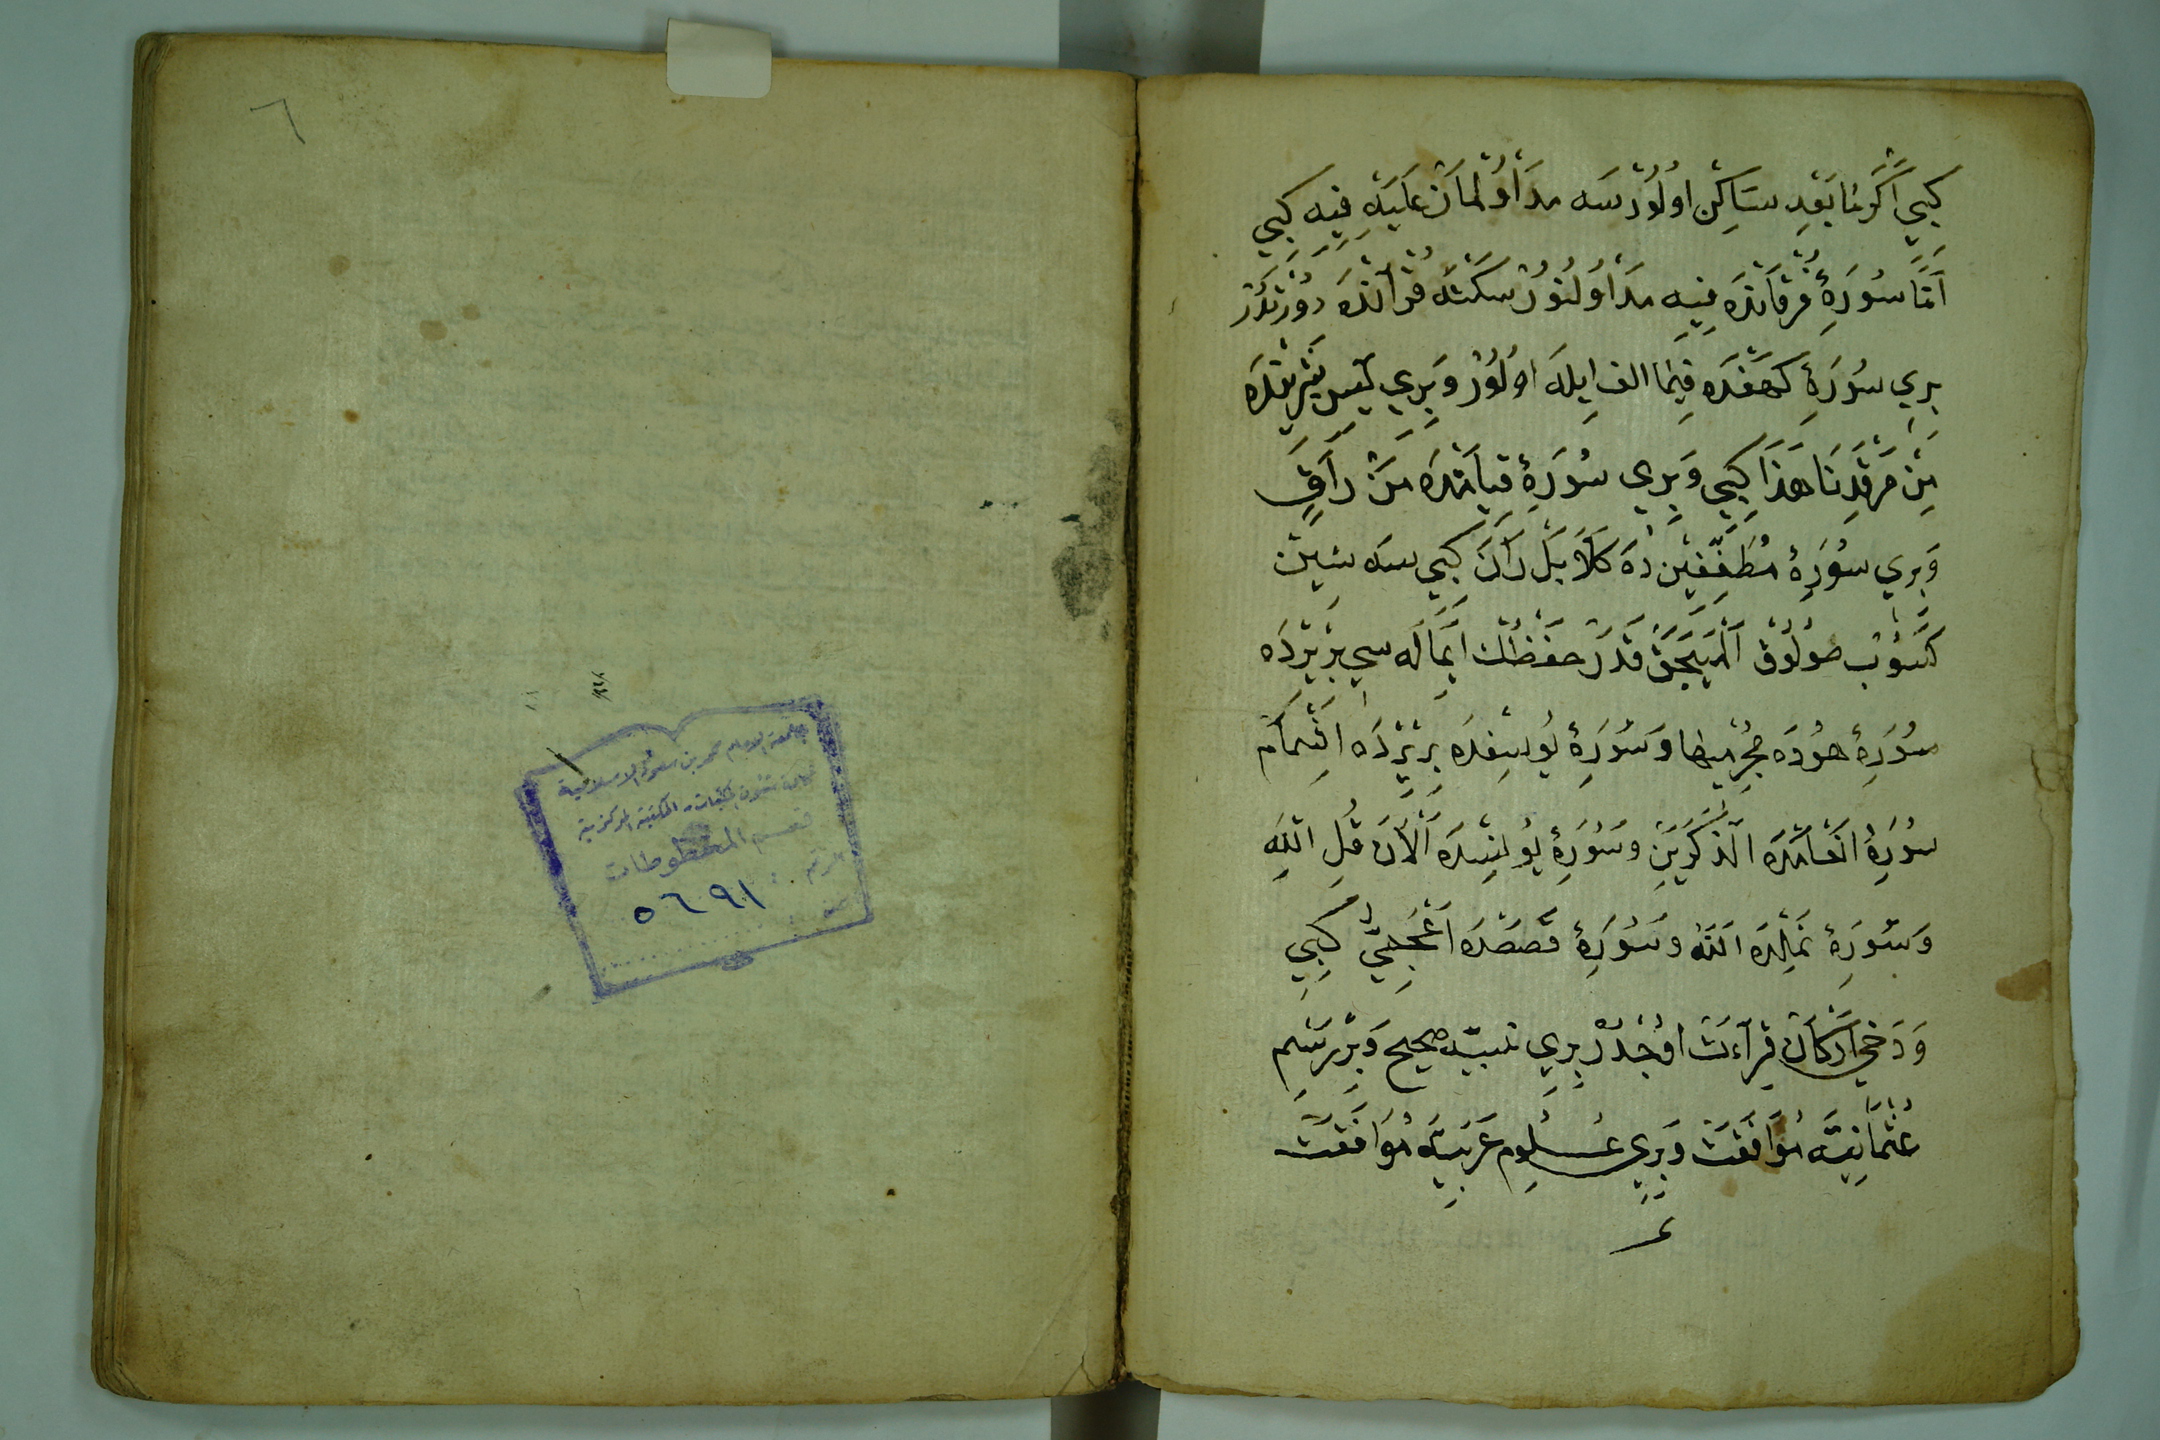 كِبِي اَكَرْ مَا بَعْدِ سَاكِنْ اوُلُوْرْسَه مدَ اوُلْمَازْ عَلَيْهِ فِيهِ كِبِي
اَمَّا سُورَۀِ فُرْقَانْدَه فِيهِ مدَ اوُلُنوُرْ سَكْتَه قُرْآنْدَه دوُرْتْدُرْ
بِرِي سُورَۀِ كَهَفْدَه قِيَمًا الف اِيلَه اوُلوُرْ وَبِرِي يَس شَرِيفْدَه
مِنْ مَرْقَدِنَا هَذَا كِبِي وَبِرِي سُورَۀِ قِيَامَتْدَه مَنْ رَاقٍ
وَبِرِي سُورَۀِ مُطَفِّفِينْ دَه كَلَّا بَلْ رَانَ كِبِي سَه سِينْ
كَسُوبْ صُولُوقْ اَلْمَيَجَقْ قَدَرْ حَفْظُكْ اِيمَالَه سِي بِرْيَرْدَه
سُورَۀِ هوُدَه مَجْرٰيهَا وَسُورَۀِ يوُسِفْدَه بِرْيَرْدَه اِشْمَام
سُورَۀِ انْعَامْدَه الَّذكَرَيْنِ وسُورَۀِ يوُنِسْدَه اَلْاٰنَ قُلِ اللهِ
وَسُورَۀِ نَمِلْدَه اللهُ وسُورَۀِ قَصَصْدَه اَعْجَمِيٌّ كِبِي
وَدَخِي اَرْكَانِ قِرَآءَتْ اوُچْدُرْ بِرِي صحيح وَبِرْ رَسْمِ
عُثْمَانِيَّه مُوَافَقَتْ وَبِرِي عُلوُمِ عَرَبِيَّه مُوَافَقَتْ
٦
جامعة الإمام محمد بن سعود الإسلامية
عمادة شئون المكتبات - المكتبة المركزية
قسم المخطوطات
الرقم : ٥٦٩١